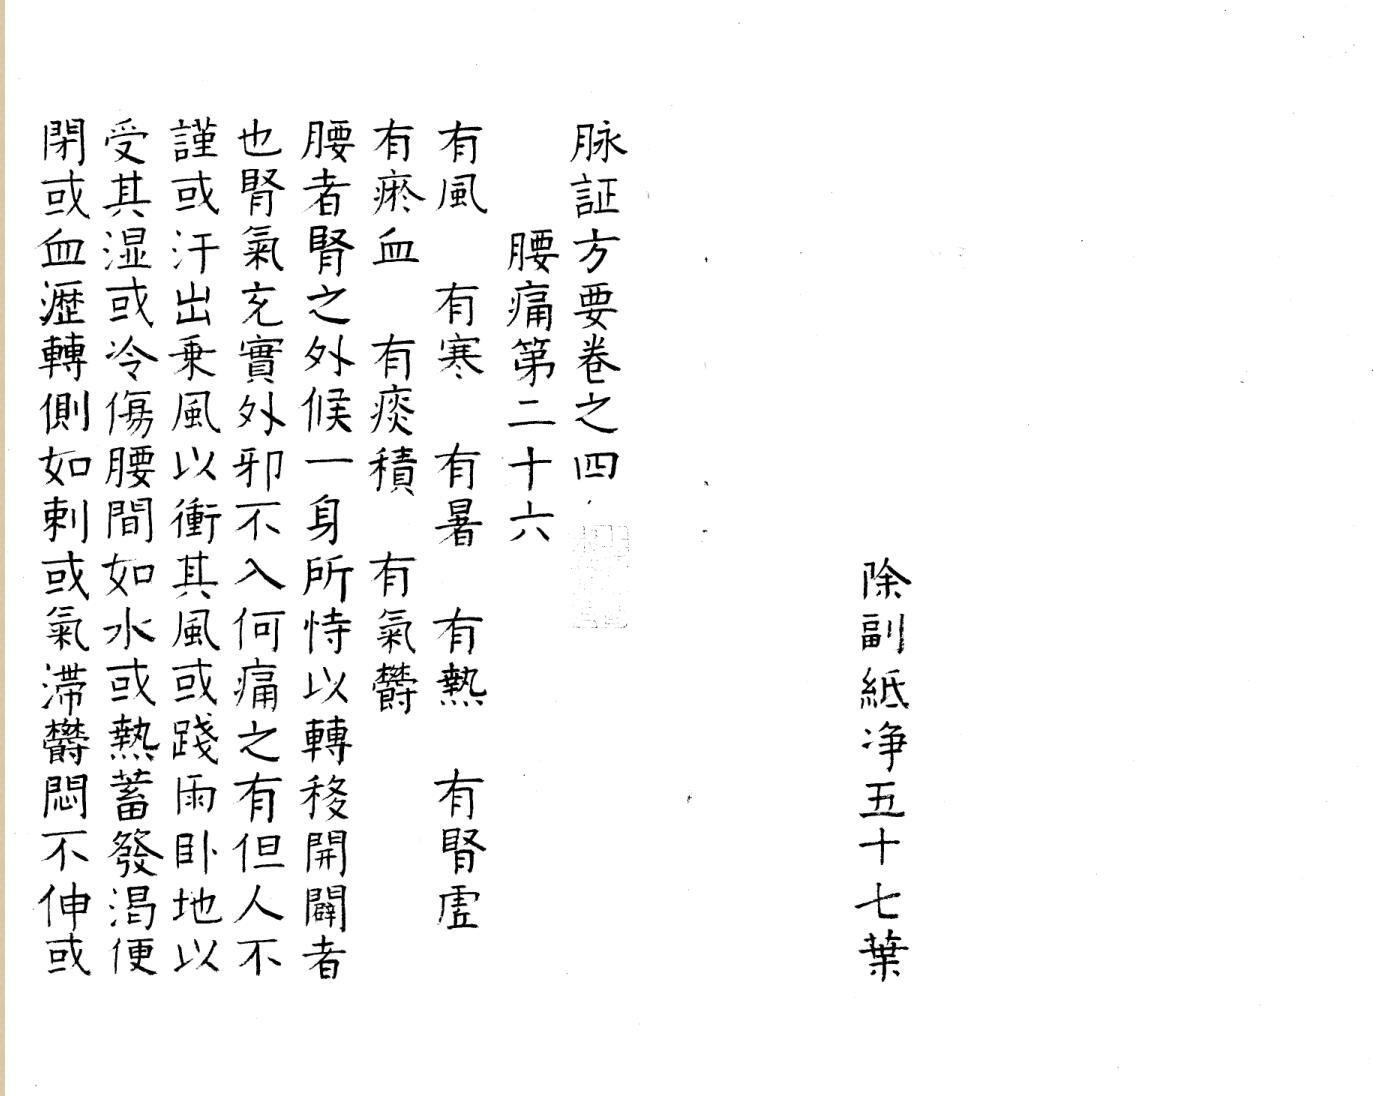 除副紙净五十七葉
脉証方要卷之四
腰痛第二十六
有風　有寒　有暑　有熱　有腎虛
有瘀血　有痰積　有氣欝
腰者腎之外候一身所恃以轉移開闢者
也腎氣充實外邪不入何痛之有但人不
謹或汗出乗風以衝其風或踐雨卧地以
受其湿或冷傷腰間如水或熱蓄發渇便
閉或血瀝轉側如刺或氣滞欝悶不伸或